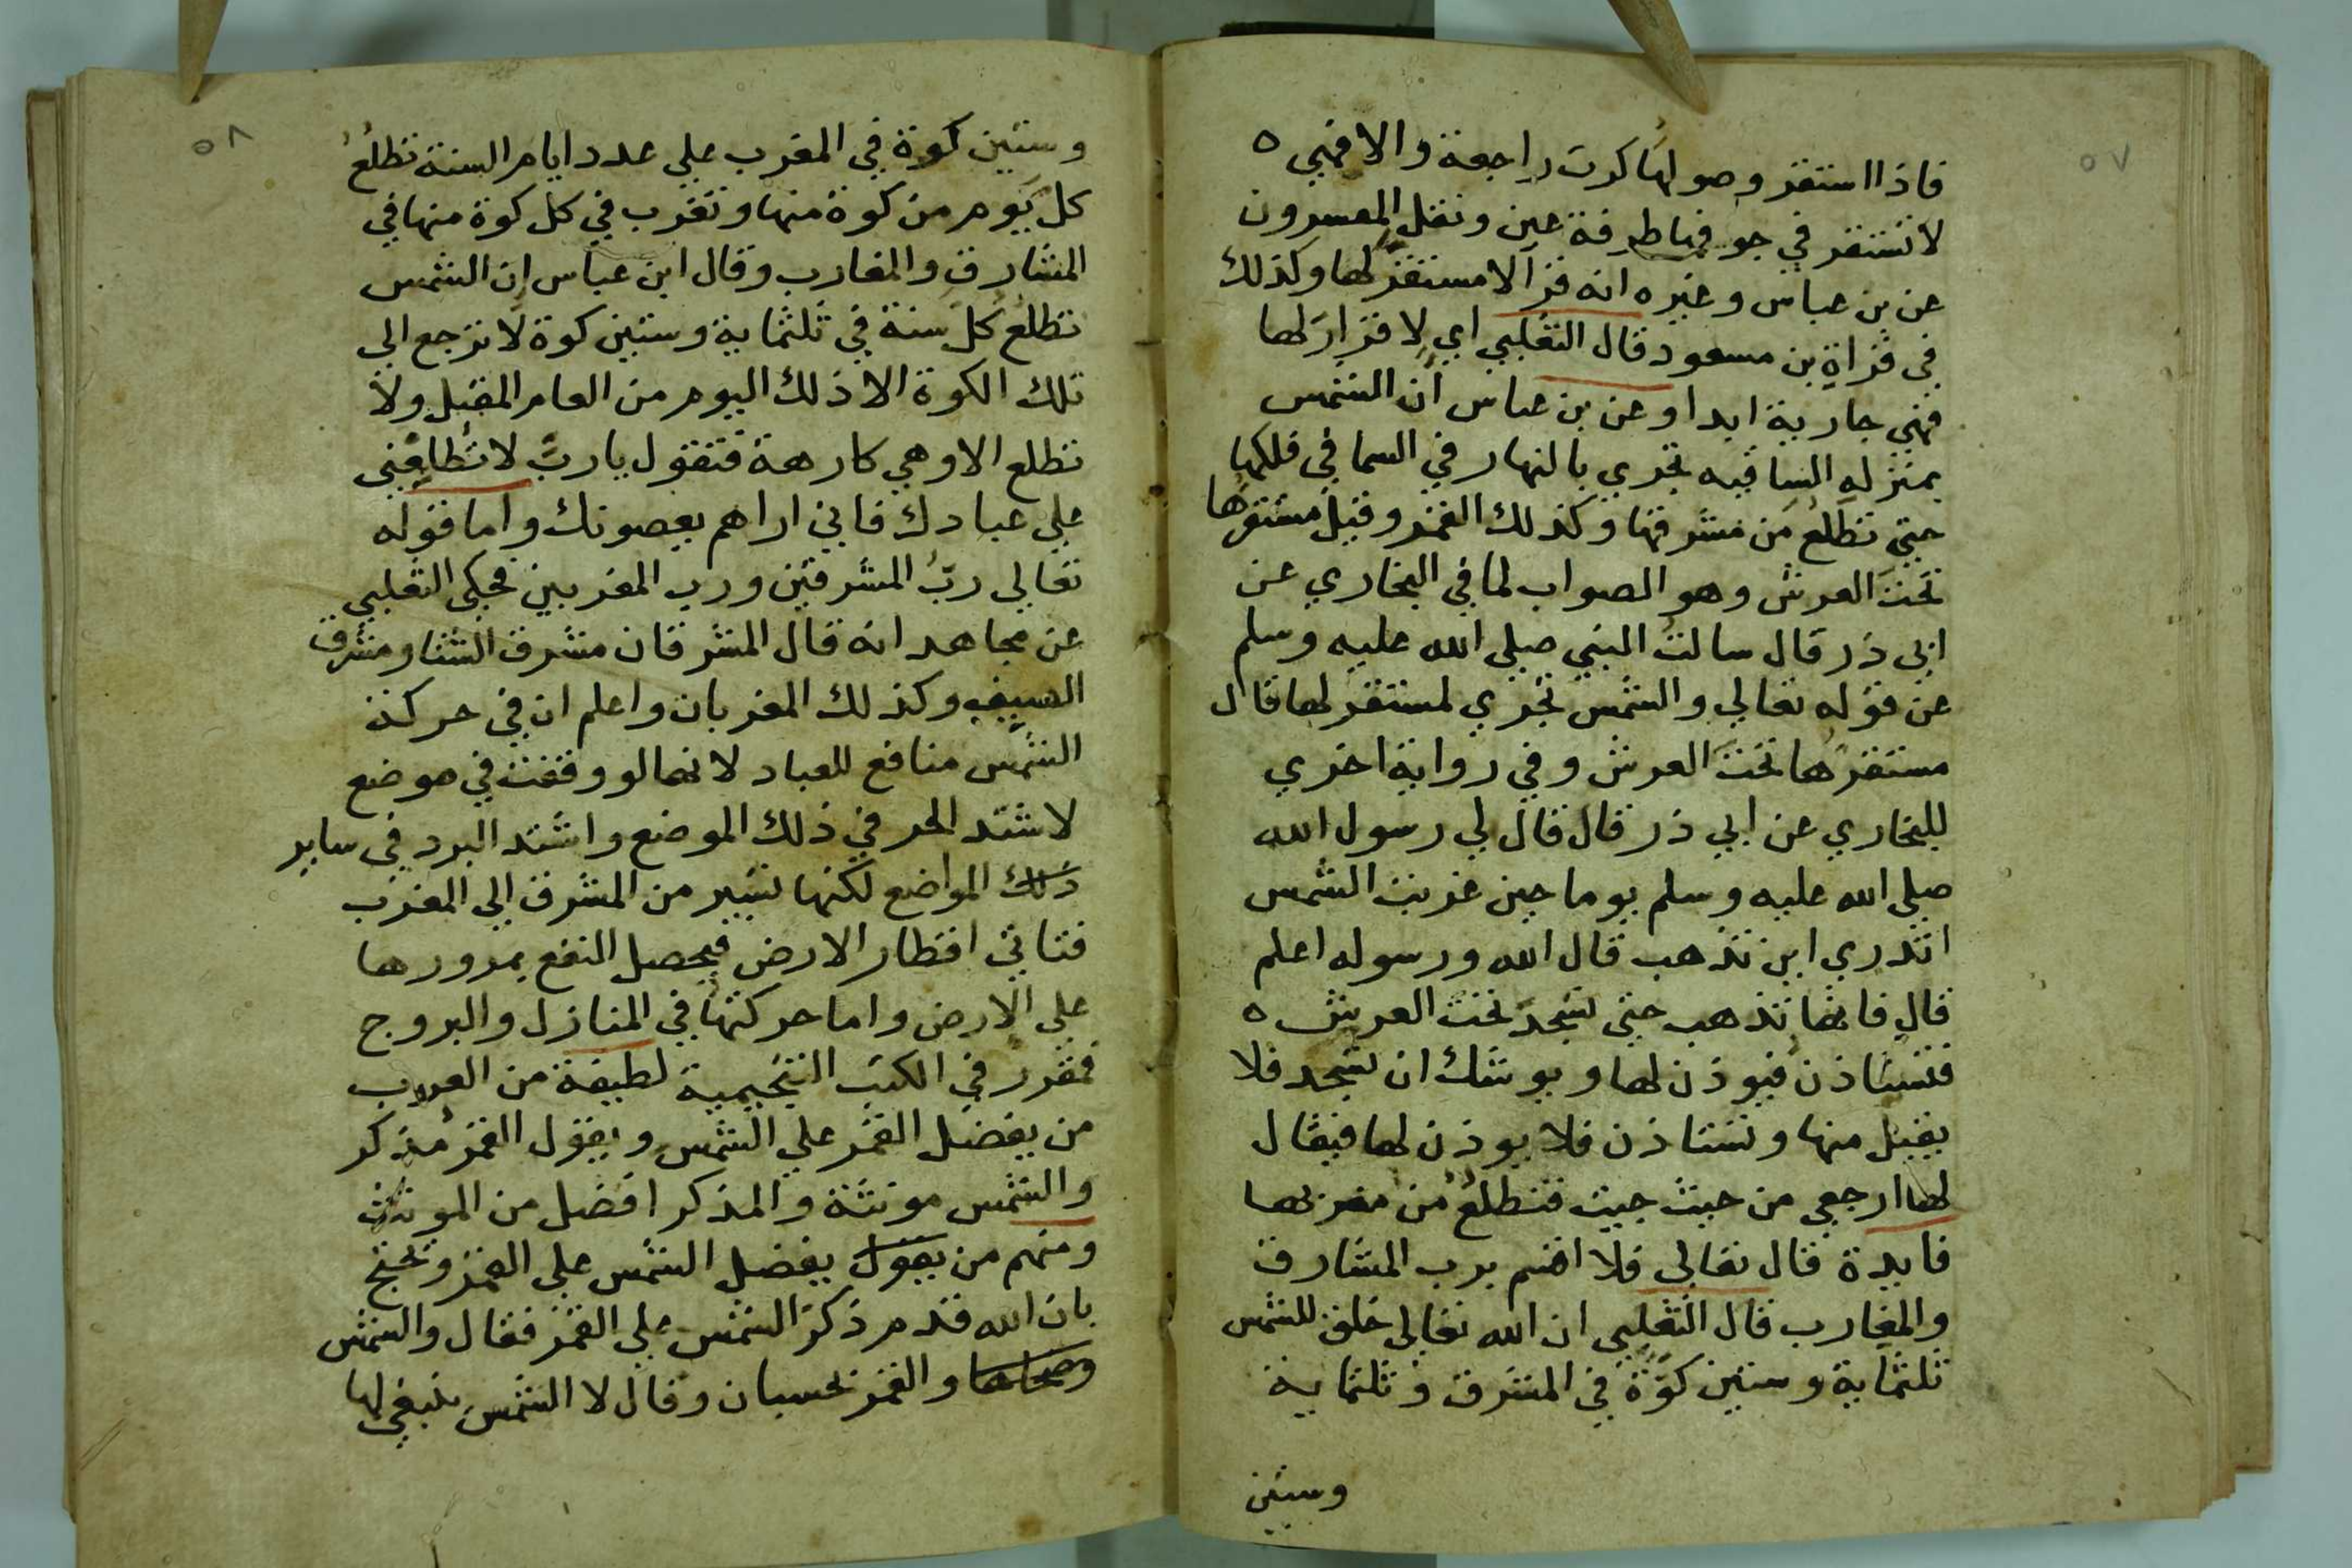 ٥٧
فاذا استقر وصولها كرت راجعة والا فهي ه
لا تستقر في جو فها طرفة عين ونقل المفسرون
عن بن عباس وغيره انه قرآ لا مستقر لها وكذلك
في قراة بن مسعود قال الثعلبي اي لا قرار لها
فهي جارية ابدا وعن بن عباس ان الشمس
بمنزله الساقيه تجري بالنهار في السما في فلكها
حتي تطلع من مشرقها وكذلك القمر وقيل مستقرها
تحت العرش وهو الصواب لما في البخاري عن
ابي ذر قال سالت النبي صلي الله عليه وسلم
عن قوله تعالي والشمس تجري لمستقر لها قال
مستقرها تحت العرش وفي رواية اخري
للبخاري عن ابي ذر قال قال لي رسول الله
صلي الله عليه وسلم يوما حين غربت الشمس
اتدري اين تذهب قال الله ورسوله اعلم
قال فانها تذهب حتي تسجد تحت العرش ه
فتستاذن فيوذن لها ويوشك ان تسجد فلا
يقبل منها وتستاذن فلا يوذن لها فيقال
لها ارجعي من حيث جيت فتطلع من مغربها
فايدة قال تعالي فلا اقسم برب المشارق
والمغارب قال الثعلبي ان الله تعالي خلق للشمس
ثلثماية وستين كوة في المشرق وثلثماية
وستين
٥٨
وستين كوة في المغرب علي عدد ايام السنة تطلع
كل يوم من كوة منها وتغرب في كل كوة منها في
المشارق والمغارب وقال ابن عباس ان الشمس
تطلع كل سنة في ثلثماية وستين كوة لا ترجع الي
تلك الكوة الا ذلك اليوم من العام المقبل ولا
تطلع الا وهي كارهة فتقول يا رب لا تطلعني
علي عبادك فاني اراهم يعصونك واما قوله
تعالي رب المشرقين ورب المغربين فحكي الثعلبي
عن مجاهد انه قال المشرقان مشرق الشتا ومشرق
الصيف وكذلك المغربان واعلم ان في حركة
الشمس منافع للعباد لانها لو وقفت في موضع
لاشتد الحر في ذلك الموضع واشتد البرد في ساير
ذلك المواضع لكنها تسير من المشرق الي المغرب
فتاتي اقطار الارض فيحصل النفع بمرورها
علي الارض واما حركتها في المنازل والبروج
فمقرر في الكتب التنجيمية لطيفة من العرب
من يفضل القمر علي الشمس ويقول القمر مذكر
والشمس مونثة والمذكر افضل من المونث
ومنهم من يقول يفضل الشمس علي القمر ويحتج
بان الله قدم ذكر الشمس علي القمر فقال والشمس
وضحاها والقمر بحسبان وقال لا الشمس ينبغي لها